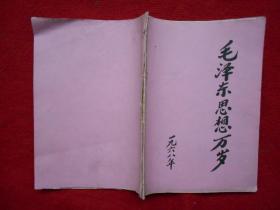 毛泽东思想万岁
一九六八年